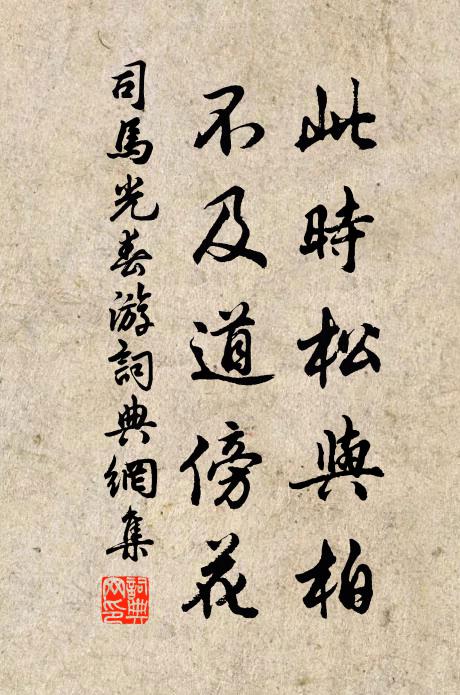 此時松與柏
不及道傍花
司馬光春游詞典網集
詞典網印